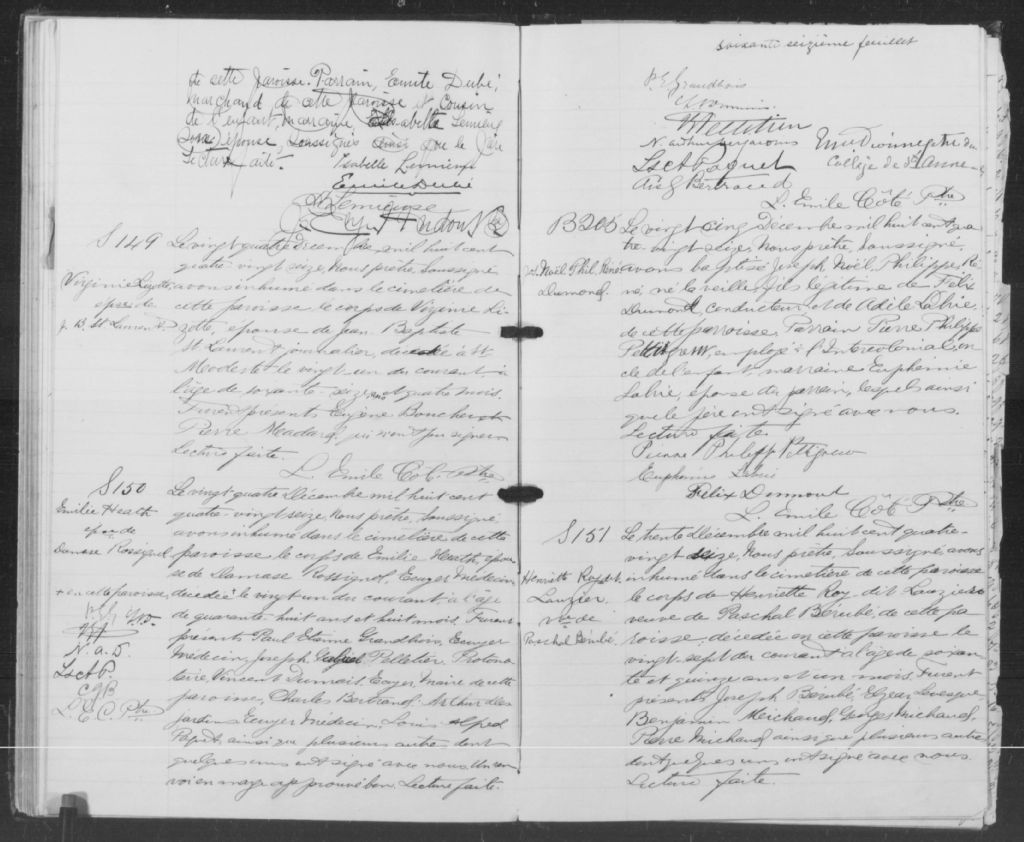 de cette paroisse. Parrain, Emile Dubé,
marchand de cette paroisse et Cousin
de l'enfant, marraine, Isabelle Lemieux
son épouse, soussignés ainsi que le père
Lecture faite.
Isabelle Lemieux
Emile Dubé
S 149
Virginie Lizotte
épse de
J. B. St Laurent
Le vingt quatre Décembre, mil huit cent
quatre vingt seize, Nous prêtre, soussigné,
avons inhumé dans le cimetière de
cette paroisse, le corps de Virginie Li-
zotte, épouse de Jean Baptiste
St Laurent, journalier, décédée à St
Modeste le vingt un du courant, à
l'âge de soixante-seize ans et quatre mois.
Furent présents Eugène Boucher et
Pierre Meadard, qui n'ont pu signer.
Lecture faite.
L. Emile Côté Ptre
S 150
Emilie Heath
épse de
Damase Rossignol
+ en cette paroisse,
N. a. D.
C G B
L. E. C. Ptre
Le vingt quatre Décembre mil huit cent
quatre-vingt seize, Nous prêtre, soussigné
avons inhumé dans le cimetière de cette
paroisse le corps de Emilie Heath, épou-
se de Damase Rossignol, Ecuyer Médecin
décédée + le vingt un du courant, à l'âge
de quarante huit ans et huit mois. Furent
présents Paul Etienne Grandbois, Ecuyer
Médecin, Joseph Pelletier, Protono-
taire, Vincent Dumais, Ecuyer, Maire de cette
paroisse, Charles Bertrand, Arthur Des
jardins Ecuyer Médecin, Louis
Paquet, ainsi que plusieurs autres dont
quelques uns ont signé avec nous. Un ren
voi en marge approuvé bon. Lecture faite.
Soixante seizième feuillet
P. E. Grandbois
Pelletier
N. Arthur Desjardins
Ls et Paquet
Chs G Bertrand
M. Dionne ptre du
Collège de Ste Anne
L. Emile Côté Ptre
B 205
Jos. Noël Phil. René
Dumond.
Le vingt cinq Décembre mil huit cent qua
tre-vingt seize, Nous prêtre, soussigné,
avons baptisé Joseph Noël Philippe Re
né, né la veille, fils légitime de Félix
Dumont, conducteur et de Adèle Labrie
de cette paroisse. Parrain Pierre Philippe
Pettigrew, employé à l'Intercolonial, on
cle de l'enfant, marraine Euphémie
Labrie, épouse du parrain, lesquels ainsi
que le père ont signé avec nous.
Lecture faite.
Pierre Philipp Pettigrew
Euphémie Labrie
Félix Dumont
L. Emile Côté Ptre
S 151
Henriette Roy dit
Lauzier
Vve de
Paschal Bérubé.
Le trente Décembre mil huit cent quatre-
vingt seize, Nous prêtre, soussigné avons
inhumé dans le cimetière de cette paroisse
le corps de Henriette Roy dit Lauzier
veuve de Paschal Bérubé de cette pa
roisse, décédée en cette paroisse le
vingt-sept du courant à l'âge de soixan
te et quinze ans et un mois. Furent
présents Joseph Bérubé, Elzéar Levesque
Benjamin Michaud, Georges Michaud,
Pierre Michaud ainsi que plusieurs autres
dont quelques uns ont signé avec nous.
Lecture faite.